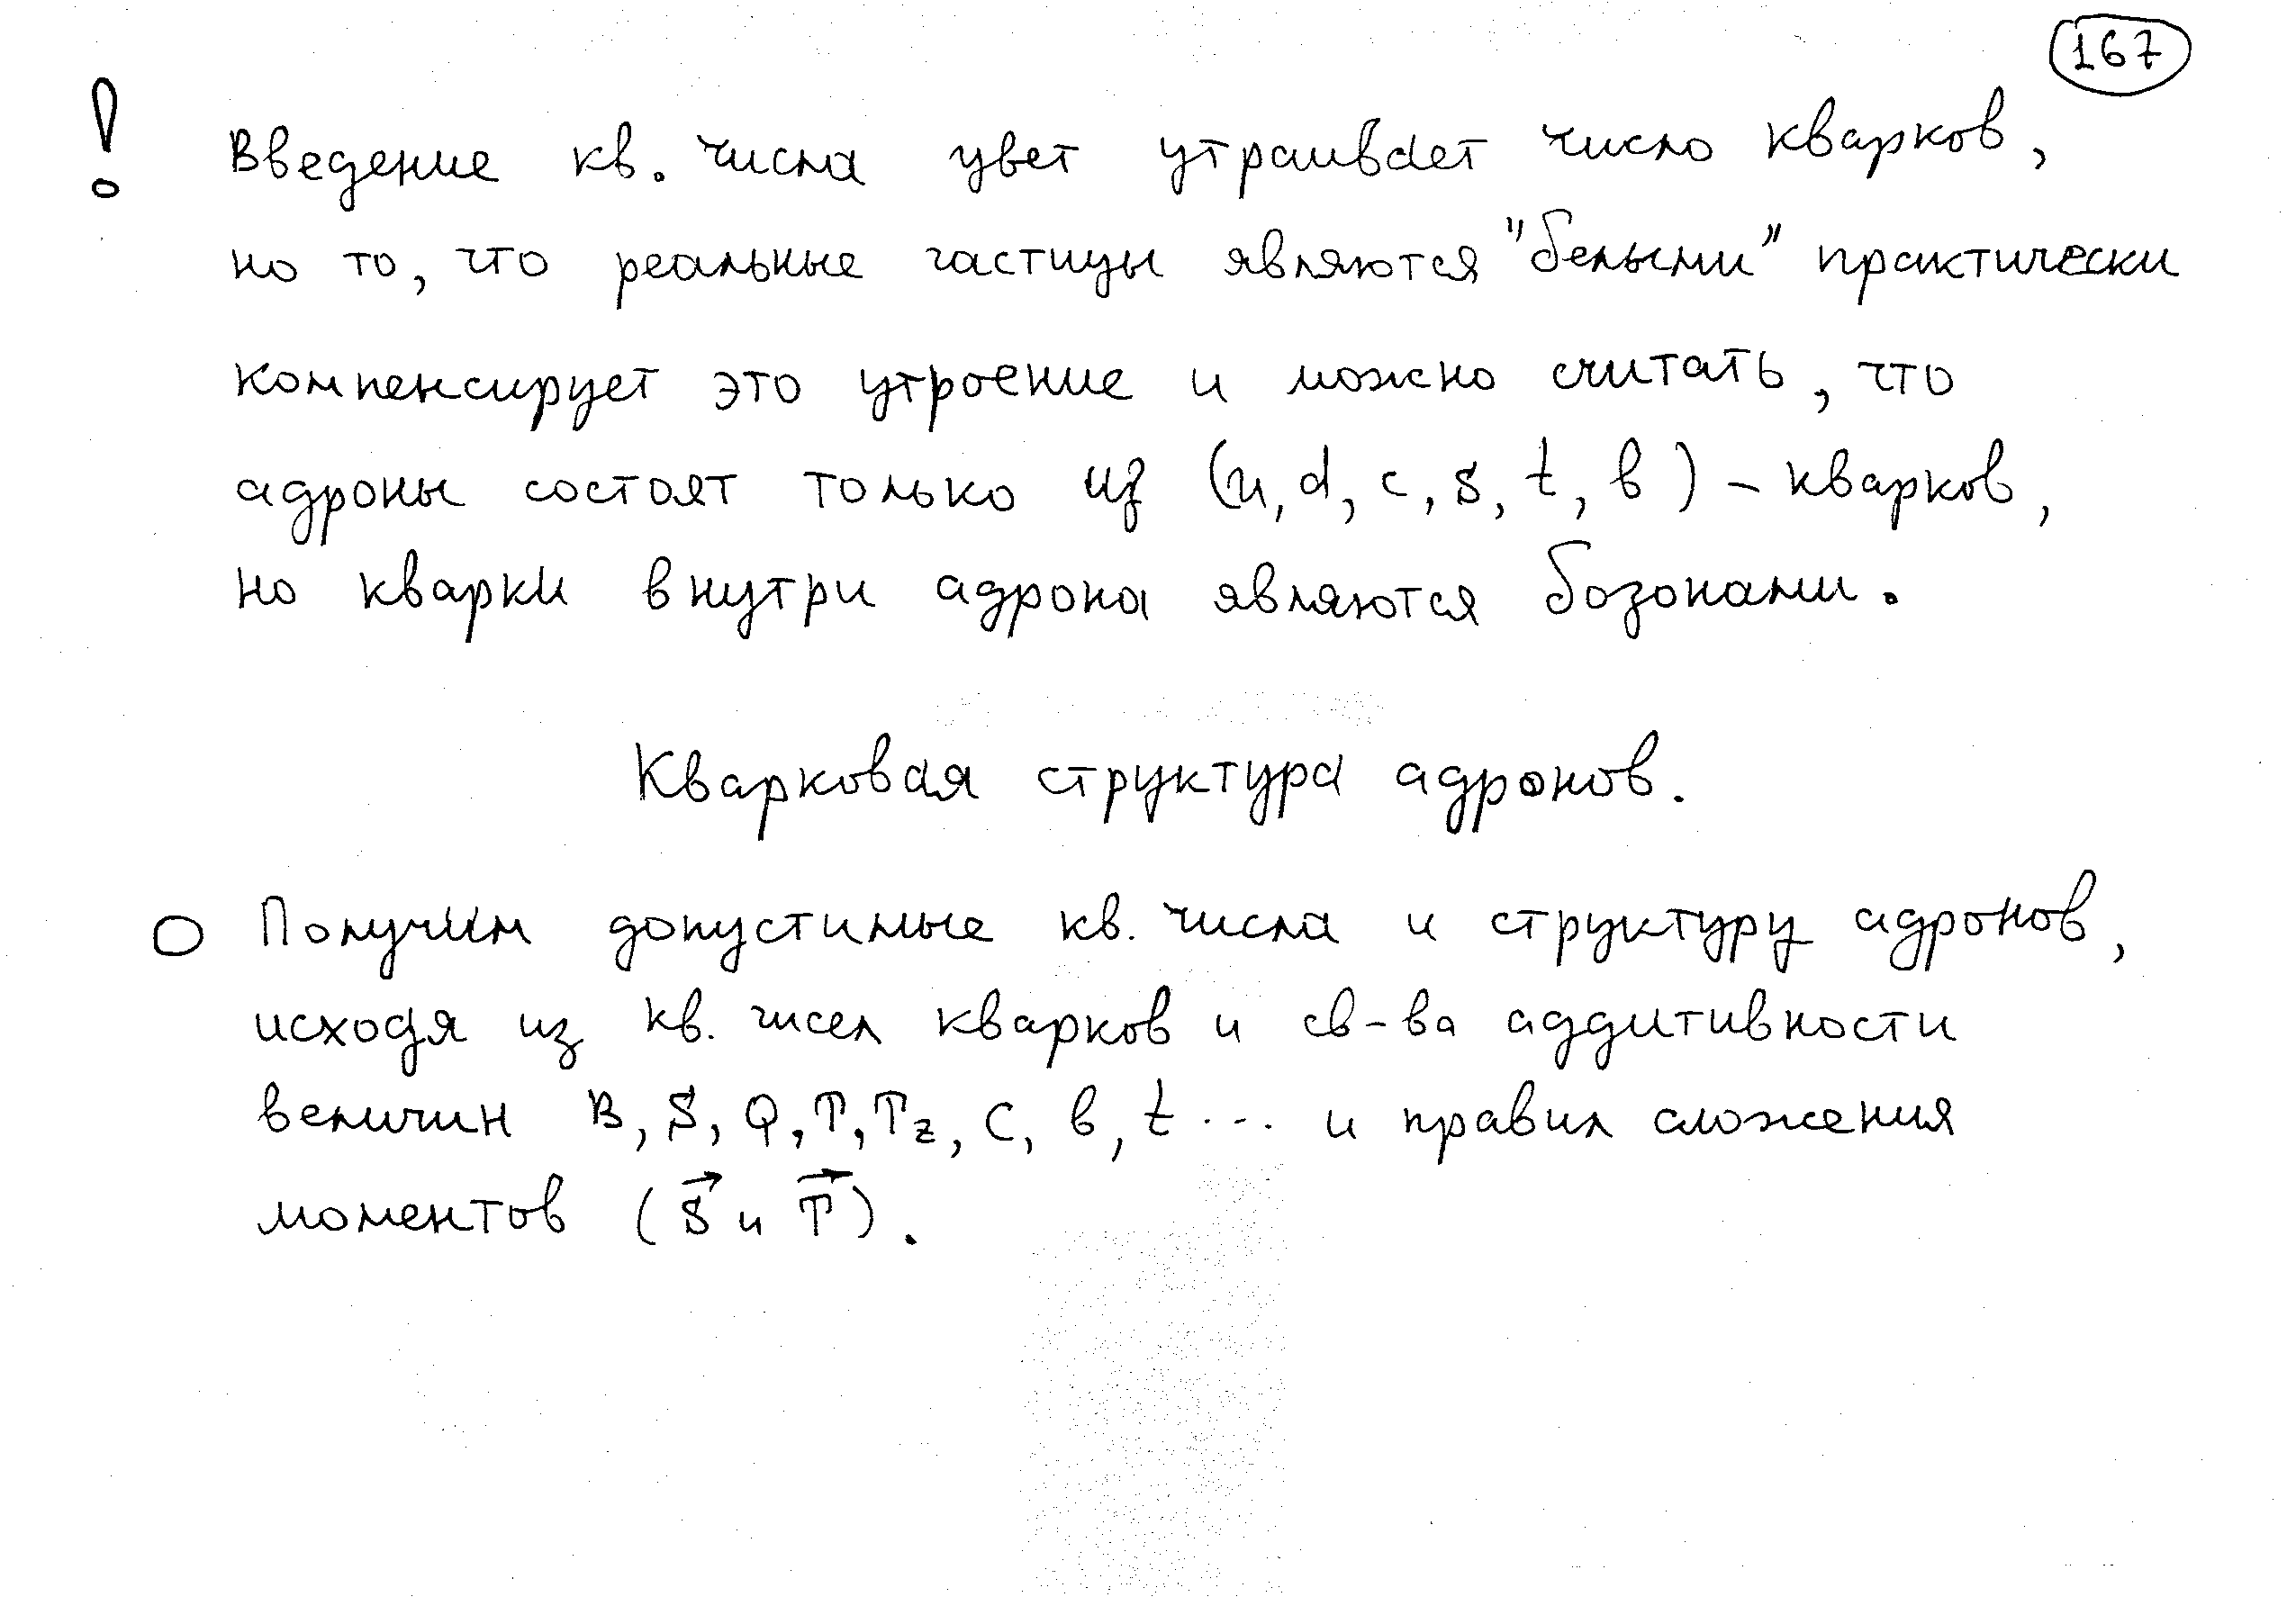 167
! Введение кв. числа цвет утраивает число кварков,
но то, что реальные частицы являются "белыми" практически
компенсирует это утроение и можно считать, что
адроны состоят только из (u, d, c, s, t, b) - кварков,
но кварки внутри адрона являются бозонами.
Кварковая структура адронов.
О Получим допустимые кв. числа и структуру адронов,
исходя из кв. чисел кварков и св-ва аддитивности
величин B, S, Q, T, Tz, C, b, t ... и правил сложения
моментов (S⃗ и T⃗).